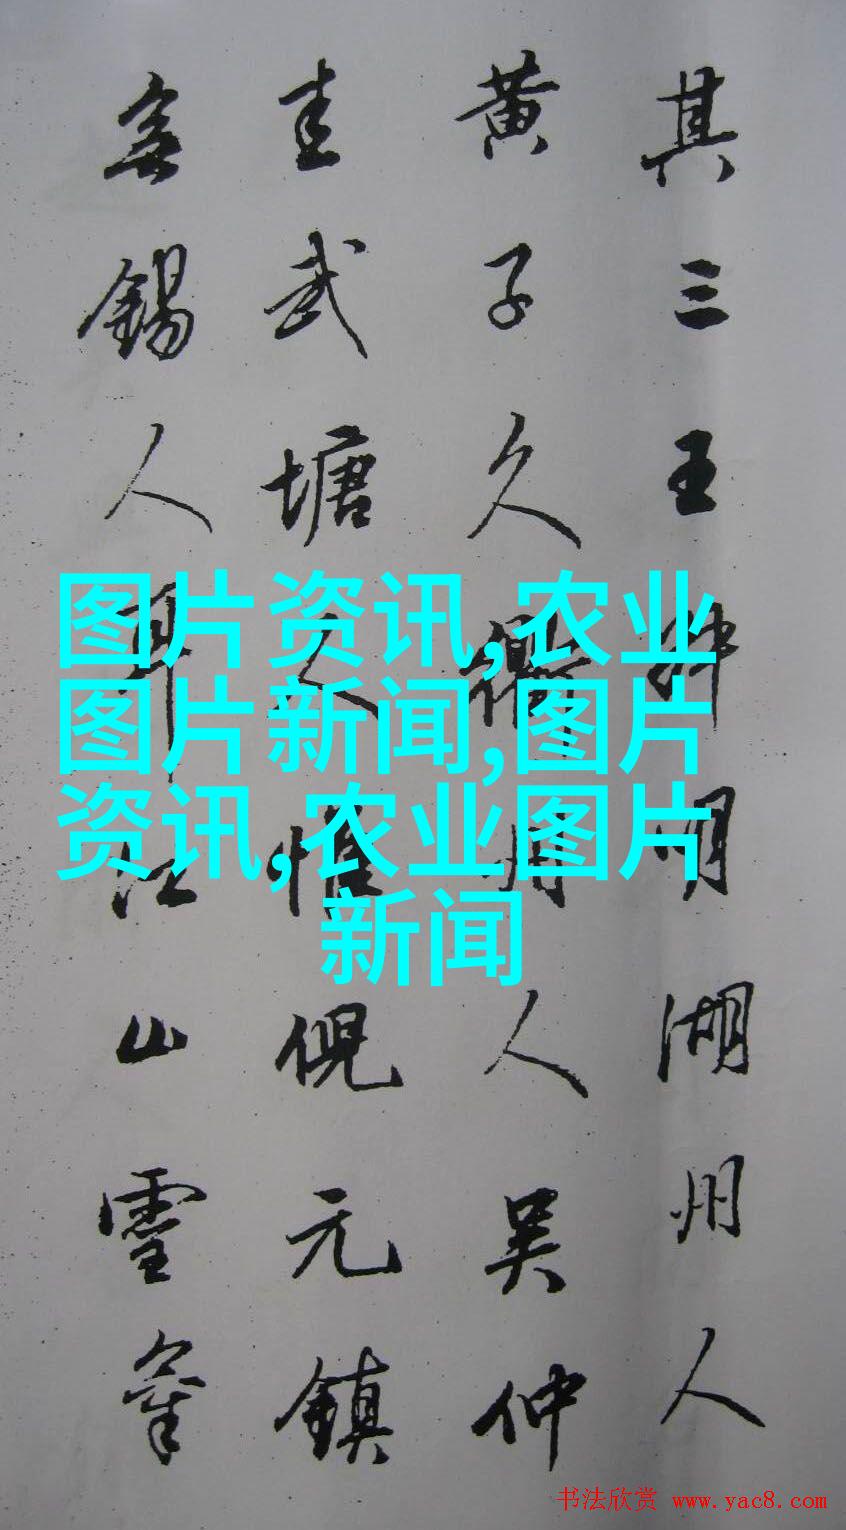 其三王叔明湖州人
黄子久衢州人吴仲
圭武塘人惟倪元镇
无锡人耳江山雪霁
图片资讯,农业
图片新闻,图片
资讯,农业图片
新闻
书法欣赏 www.yac8.com